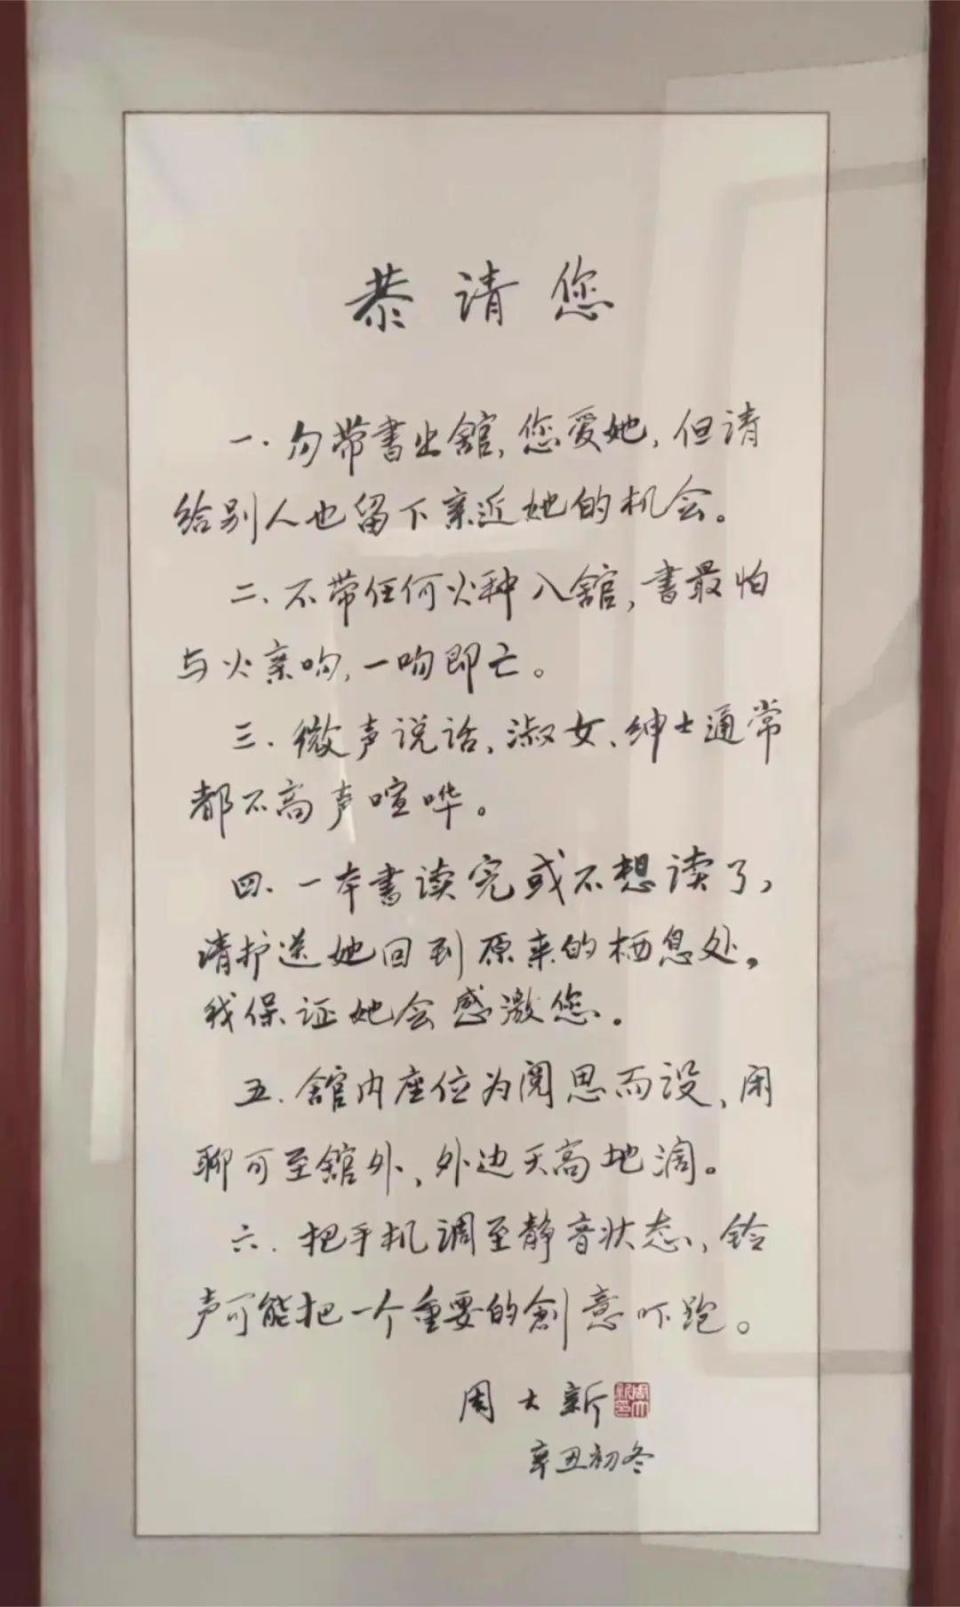 恭请您
一.勿带书出舘,您爱她,但请
给别人也留下亲近她的机会。
二、不带任何火种入舘,书最怕
与火亲吻,一吻即亡。
三.微声说话,淑女、绅士通常
都不高声喧哗。
四.一本书读完或不想读了,
请护送她回到原来的栖息处,
我保证她会感激您.
五.舘内座位为阅思而设,闲
聊可至舘外,外边天高地阔。
六.把手机调至静音状态,铃
声可能把一个重要的创意吓跑。
周大新
辛丑初冬